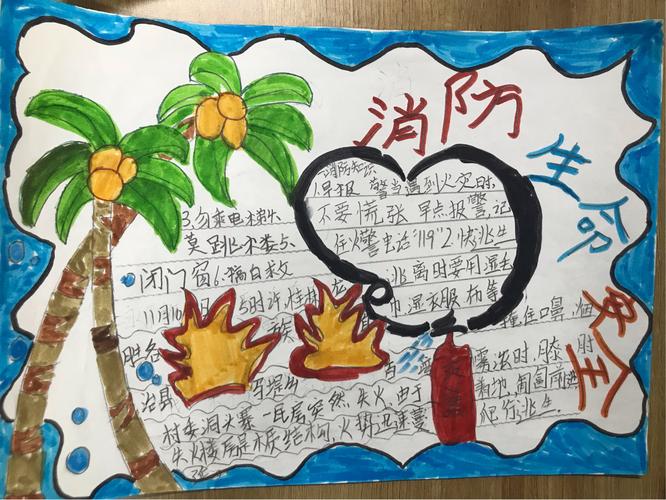 消防
生命
安全
消防知识
1.早报警当遇到火灾时
不要慌张 早点报警,记
住火警电话"119"2.快逃生
逃离时要用湿毛
巾、湿衣服、布等
住口鼻,烟
浓时,膝 肘
着地,匍匐前进
爬行逃生.
3.勿乘电梯4.
莫跳
闭门窗6.搞自救
11月10日 5时许,桂林 龙
胜各 族
治县 马堤
村委洞大寨一民房突然失火,由于
失火楼房是木质结构,火势迅速蔓